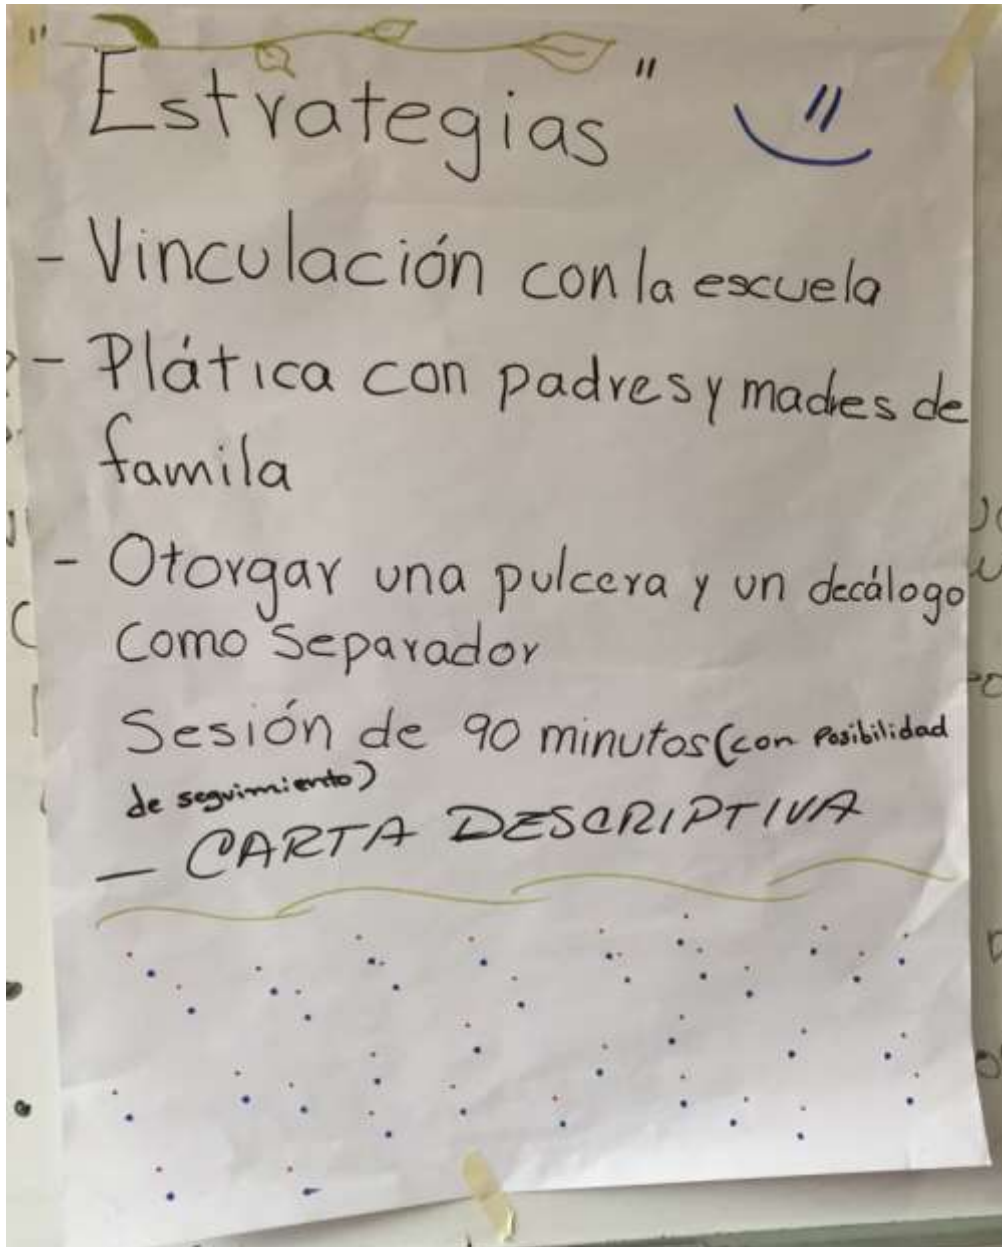 "Estrategias"
- Vinculación con la escuela
- Plática con padres y madres de
famila
- Otorgar una pulcera y un decálogo
como separador
Sesión de 90 minutos (con Posibilidad
de seguimiento)
- CARTA DESCRIPTIVA